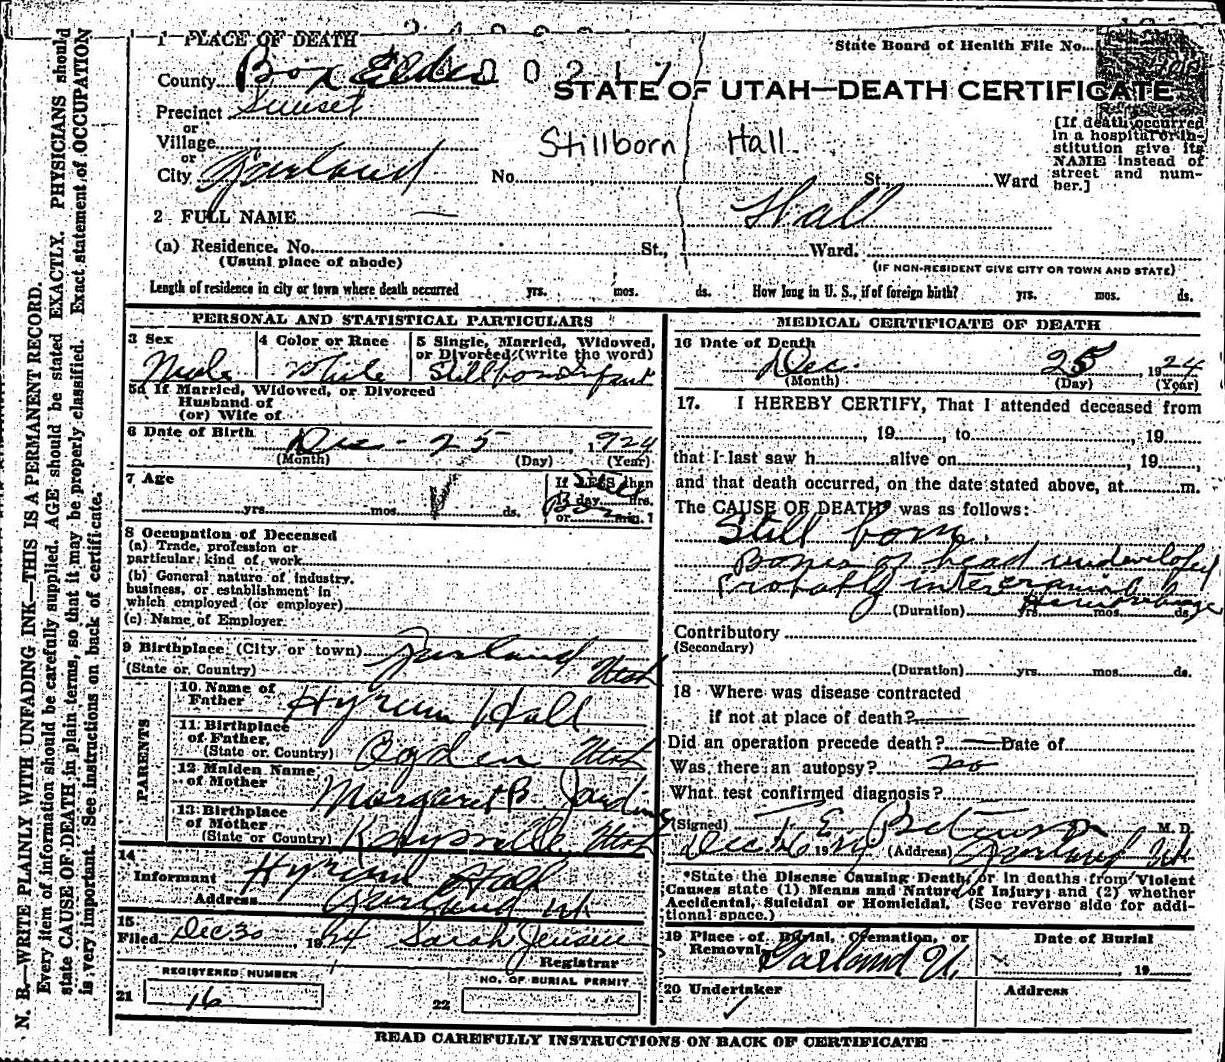 1 PLACE OF DEATH
State Board of Health File No...
County Box Elder
STATE OF UTAH—DEATH CERTIFICATE
Precinct Sunset
or
Village
or
City Garland
Stillborn Hall
No. St. Ward
[If death occurred in a hospital or institution give its NAME instead of street and number.]
2 FULL NAME — Hall
(a) Residence. No. St., Ward.
(Usual place of abode)
(IF NON-RESIDENT GIVE CITY OR TOWN AND STATE)
Length of residence in city or town where death occurred yrs. mos. ds. How long in U. S., if of foreign birth? yrs. mos. ds.
PERSONAL AND STATISTICAL PARTICULARS
3 Sex
Male
4 Color or Race
White
5 Single, Married, Widowed, or Divorced (write the word)
Stillborn Infant
5a If Married, Widowed, or Divorced
Husband of
(or) Wife of
6 Date of Birth Dec. 25, 1924
(Month) (Day) (Year)
7 Age
yrs. mos. ds.
If LESS than
1 day hrs.
or min.?
Still
Born
8 Occupation of Deceased
(a) Trade, profession or
particular kind of work
(b) General nature of industry,
business, or establishment in
which employed (or employer)
(c) Name of Employer
9 Birthplace (City or town) Garland
(State or Country) Utah
PARENTS
10 Name of Father Hyrum Hall
11 Birthplace of Father (State or Country) Ogden Utah
12 Maiden Name of Mother Margaret B. Jardine
13 Birthplace of Mother (State or Country) Kaysville Utah
14
Informant Hyrum Hall
Address Garland Ut
15
Filed Dec 30, 1924 Sarah Jensen
Registrar
REGISTERED NUMBER
21 16
NO. OF BURIAL PERMIT
22
MEDICAL CERTIFICATE OF DEATH
16 Date of Death
Dec. 25, 1924
(Month) (Day) (Year)
17. I HEREBY CERTIFY, That I attended deceased from
, 19 , to , 19
that I last saw h alive on , 19 ,
and that death occurred, on the date stated above, at m.
The CAUSE OF DEATH* was as follows:
Still born.
Bones of head undeveloped
Probably intercranial
Hemorrhage
(Duration) yrs. mos. ds.
Contributory
(Secondary)
(Duration) yrs. mos. ds.
18 Where was disease contracted
if not at place of death?
Did an operation precede death? — Date of
Was there an autopsy? no
What test confirmed diagnosis?
(Signed) M. D.
Dec 26 1924 (Address) Garland Ut
*State the Disease Causing Death, or in deaths from Violent
Causes state (1) Means and Nature of Injury; and (2) whether
Accidental, Suicidal or Homicidal. (See reverse side for additional space.)
19 Place of Burial, Cremation, or Removal
Garland U.
Date of Burial
19
20 Undertaker
Address
READ CAREFULLY INSTRUCTIONS ON BACK OF CERTIFICATE
N. B.—WRITE PLAINLY WITH UNFADING INK—THIS IS A PERMANENT RECORD.
Every item of information should be carefully supplied. AGE should be stated EXACTLY. PHYSICIANS should
state CAUSE OF DEATH in plain terms, so that it may be properly classified. Exact statement of OCCUPATION
is very important. See instructions on back of certificate.